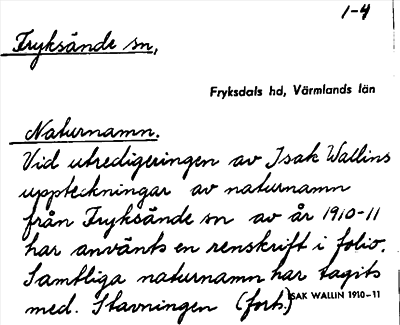 1-4
Fryksände sn,
Fryksdals hd, Värmlands län
Naturnamn.
Vid utredigeringen av Isak Wallins
uppteckningar av naturnamn
från Fryksände sn av år 1910-11
har använts en renskrift i folio.
Samtliga naturnamn har tagits
med. Stavningen (forts.)
ISAK WALLIN 1910-11